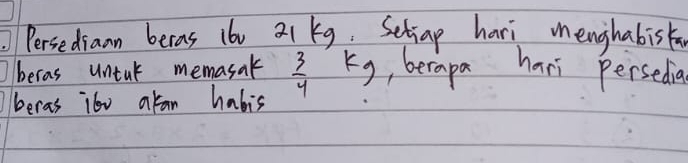 . Persediaan beras ibu 21 kg. Setiap hari menghabiskan
beras untuk memasak 3/4 kg, berapa hari persedia
beras ibu akan habis